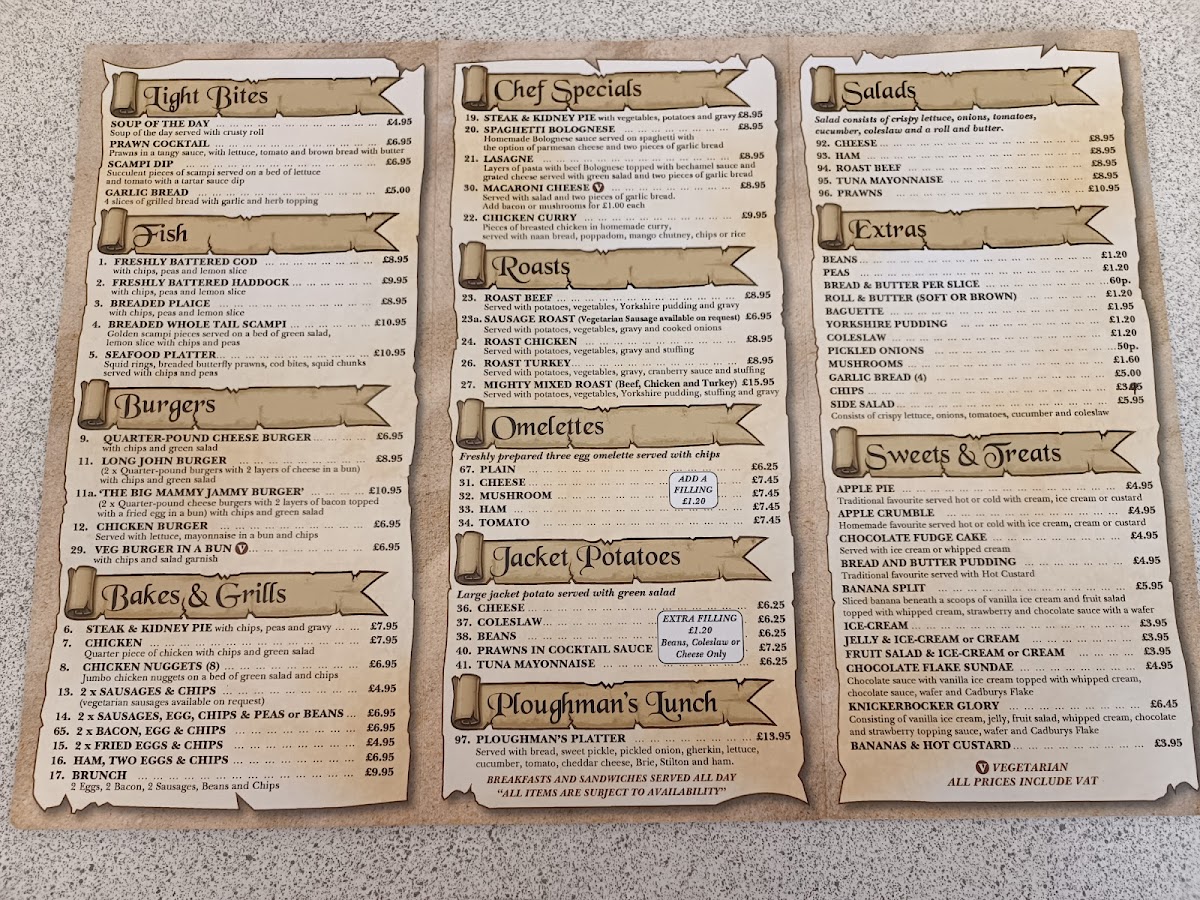 Light Bites
SOUP OF THE DAY ... £4.95
Soup of the day served with crusty roll
PRAWN COCKTAIL ... £6.95
Prawns in a tangy sauce, with lettuce, tomato and brown bread with butter
SCAMPI DIP ... £6.95
Succulent pieces of scampi served on a bed of lettuce
and tomato with a tartar sauce dip
GARLIC BREAD ... £5.00
4 slices of grilled bread with garlic and herb topping
Fish
1. FRESHLY BATTERED COD ... £8.95
with chips, peas and lemon slice
2. FRESHLY BATTERED HADDOCK ... £9.95
with chips, peas and lemon slice
3. BREADED PLAICE ... £8.95
with chips, peas and lemon slice
4. BREADED WHOLE TAIL SCAMPI ... £10.95
Golden scampi pieces served on a bed of green salad,
lemon slice with chips and peas
5. SEAFOOD PLATTER ... £10.95
Squid rings, breaded butterfly prawns, cod bites, squid chunks
served with chips and peas
Burgers
9. QUARTER-POUND CHEESE BURGER ... £6.95
with chips and green salad
11. LONG JOHN BURGER ... £8.95
(2 x Quarter-pound burgers with 2 layers of cheese in a bun)
with chips and green salad
11a. 'THE BIG MAMMY JAMMY BURGER' ... £10.95
(2 x Quarter-pound cheese burgers with 2 layers of bacon topped
with a fried egg in a bun) with chips and green salad
12. CHICKEN BURGER ... £6.95
Served with lettuce, mayonnaise in a bun and chips
29. VEG BURGER IN A BUN V ... £6.95
with chips and salad garnish
Bakes & Grills
6. STEAK & KIDNEY PIE with chips, peas and gravy ... £7.95
7. CHICKEN ... £7.95
Quarter piece of chicken with chips and green salad
8. CHICKEN NUGGETS (8) ... £6.95
Jumbo chicken nuggets on a bed of green salad and chips
13. 2 x SAUSAGES & CHIPS ... £4.95
(vegetarian sausages available on request)
14. 2 x SAUSAGES, EGG, CHIPS & PEAS or BEANS ... £6.95
65. 2 x BACON, EGG & CHIPS ... £6.95
15. 2 x FRIED EGGS & CHIPS ... £4.95
16. HAM, TWO EGGS & CHIPS ... £6.95
17. BRUNCH ... £9.95
2 Eggs, 2 Bacon, 2 Sausages, Beans and Chips
Chef Specials
19. STEAK & KIDNEY PIE with vegetables, potatoes and gravy £8.95
20. SPAGHETTI BOLOGNESE ... £8.95
Homemade Bolognese sauce served on spaghetti with
the option of parmesan cheese and two pieces of garlic bread
21. LASAGNE ... £8.95
Layers of pasta with beef Bolognese topped with bechamel sauce and
grated cheese served with green salad and two pieces of garlic bread
30. MACARONI CHEESE V ... £8.95
Served with salad and two pieces of garlic bread.
Add bacon or mushrooms for £1.00 each
22. CHICKEN CURRY ... £9.95
Pieces of breasted chicken in homemade curry,
served with naan bread, poppadom, mango chutney, chips or rice
Roasts
23. ROAST BEEF ... £8.95
Served with potatoes, vegetables, Yorkshire pudding and gravy
23a. SAUSAGE ROAST (Vegetarian Sausage available on request) £6.95
Served with potatoes, vegetables, gravy and cooked onions
24. ROAST CHICKEN ... £8.95
Served with potatoes, vegetables, gravy and stuffing
26. ROAST TURKEY ... £8.95
Served with potatoes, vegetables, gravy, cranberry sauce and stuffing
27. MIGHTY MIXED ROAST (Beef, Chicken and Turkey) £15.95
Served with potatoes, vegetables, Yorkshire pudding, stuffing and gravy
Omelettes
Freshly prepared three egg omelette served with chips
67. PLAIN ... £6.25
31. CHEESE ... £7.45
32. MUSHROOM ... £7.45
33. HAM ... £7.45
34. TOMATO ... £7.45
ADD A
FILLING
£1.20
Jacket Potatoes
Large jacket potato served with green salad
36. CHEESE ... £6.25
37. COLESLAW ... £6.25
38. BEANS ... £6.25
40. PRAWNS IN COCKTAIL SAUCE £7.25
41. TUNA MAYONNAISE ... £6.25
EXTRA FILLING
£1.20
Beans, Coleslaw or
Cheese Only
Ploughman's Lunch
97. PLOUGHMAN'S PLATTER ... £13.95
Served with bread, sweet pickle, pickled onion, gherkin, lettuce,
cucumber, tomato, cheddar cheese, Brie, Stilton and ham.
BREAKFASTS AND SANDWICHES SERVED ALL DAY
"ALL ITEMS ARE SUBJECT TO AVAILABILITY"
Salads
Salad consists of crispy lettuce, onions, tomatoes,
cucumber, coleslaw and a roll and butter.
92. CHEESE ... £8.95
93. HAM ... £8.95
94. ROAST BEEF ... £8.95
95. TUNA MAYONNAISE ... £8.95
96. PRAWNS ... £10.95
Extras
BEANS ... £1.20
PEAS ... £1.20
BREAD & BUTTER PER SLICE ... 60p.
ROLL & BUTTER (SOFT OR BROWN) £1.20
BAGUETTE ... £1.95
YORKSHIRE PUDDING ... £1.20
COLESLAW ... £1.20
PICKLED ONIONS ... 50p.
MUSHROOMS ... £1.60
GARLIC BREAD (4) ... £5.00
CHIPS ...
SIDE SALAD ... £5.95
Consists of crispy lettuce, onions, tomatoes, cucumber and coleslaw
Sweets & Treats
APPLE PIE ... £4.95
Traditional favourite served hot or cold with cream, ice cream or custard
APPLE CRUMBLE ... £4.95
Homemade favourite served hot or cold with ice cream, cream or custard
CHOCOLATE FUDGE CAKE ... £4.95
Served with ice cream or whipped cream
BREAD AND BUTTER PUDDING ... £4.95
Traditional favourite served with Hot Custard
BANANA SPLIT ... £5.95
Sliced banana beneath a scoops of vanilla ice cream and fruit salad
topped with whipped cream, strawberry and chocolate sauce with a wafer
ICE-CREAM ... £3.95
JELLY & ICE-CREAM or CREAM ... £3.95
FRUIT SALAD & ICE-CREAM or CREAM ... £3.95
CHOCOLATE FLAKE SUNDAE ... £4.95
Chocolate sauce with vanilla ice cream topped with whipped cream,
chocolate sauce, wafer and Cadburys Flake
KNICKERBOCKER GLORY ... £6.45
Consisting of vanilla ice cream, jelly, fruit salad, whipped cream, chocolate
and strawberry topping sauce, wafer and Cadburys Flake
BANANAS & HOT CUSTARD ... £3.95
V VEGETARIAN
ALL PRICES INCLUDE VAT